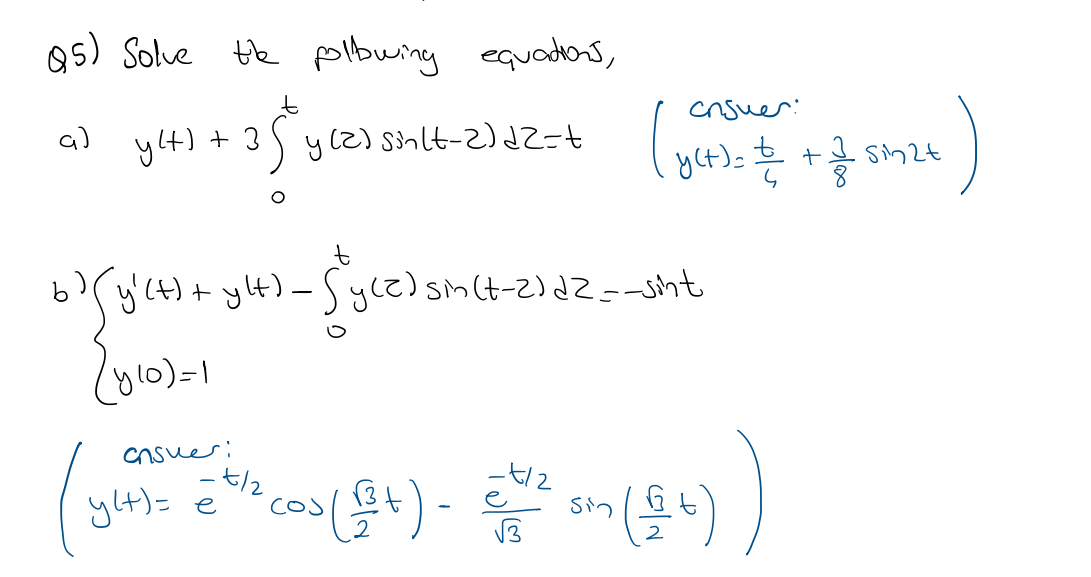 Q5) Solve the following equations,
a) y(t) + 3∫₀ᵗ y(z) sin(t-z) dz = t
(answer: y(t) = t/4 + 3/8 sin2t)
b) { y'(t) + y(t) - ∫₀ᵗ y(z) sin(t-z) dz = -sint
y(0) = 1
(answer:
y(t) = e^(-t/2) cos(√3/2 t) - e^(-t/2)/√3 sin(√3/2 t))